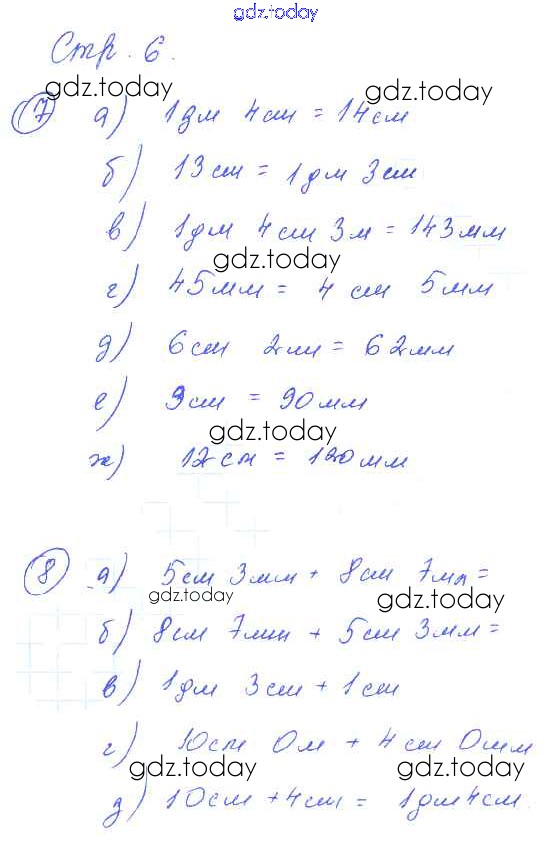 gdz.today
Стр. 6.
gdz.today gdz.today
7 а) 1дм 4см = 14см
б) 13см = 1дм 3см
в) 1дм 4см 3м = 143мм
gdz.today
г) 45мм = 4 см 5мм
д) 6см 2мм = 62мм
е) 9см = 90мм
gdz.today
ж) 12см = 120мм
8 а) 5см 3мм + 8см 7мм =
gdz.today gdz.today
б) 8см 7мм + 5см 3мм =
в) 1дм 3см + 1см
gdz.today
г) 10см 0м + 4см 0мм
gdz.today gdz.today
д) 10см + 4см = 1дм 4см.